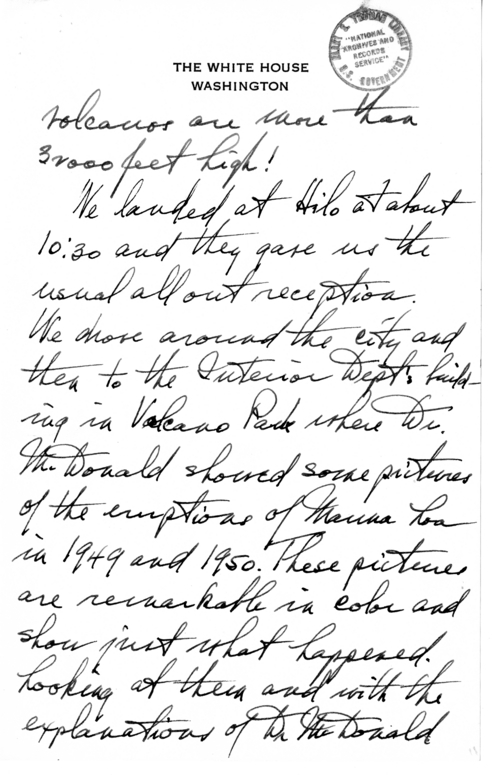 HARRY S. TRUMAN LIBRARY
"NATIONAL
ARCHIVES AND
RECORDS
SERVICE"
U.S. GOVERNMENT
THE WHITE HOUSE
WASHINGTON
volcanos are more than
32000 feet high!
We landed at Hilo at about
10:30 and they gave us the
usual all out reception.
We drove around the city and
then to the Interior Dept's build-
ing in Volcano Park where Dr.
McDonald showed some pictures
of the eruptions of Mauna Loa
in 1949 and 1950. These pictures
are remarkable in color and
show just what happened.
Looking at them and with the
explanations of Dr McDonald